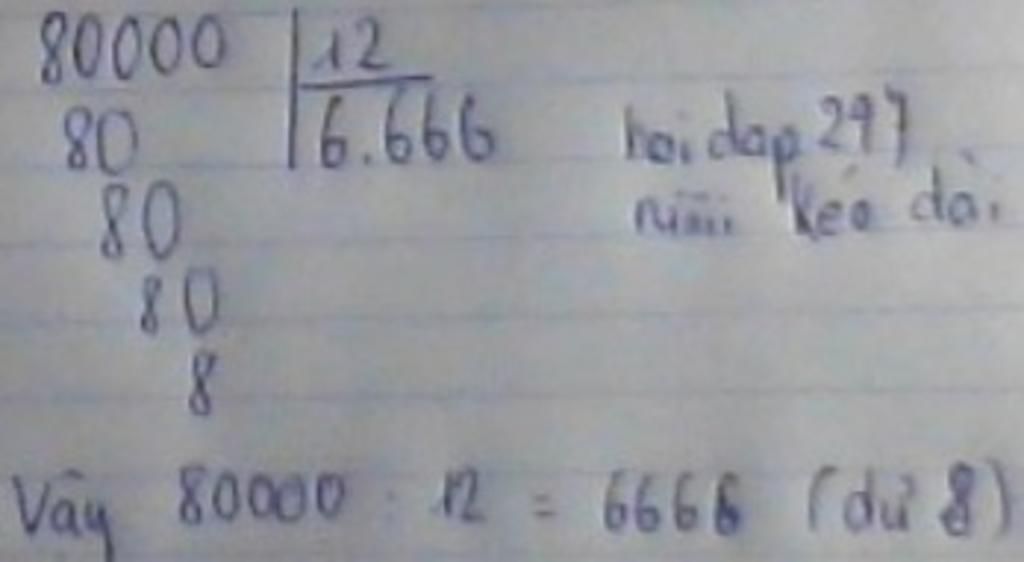 80000 | 12
80 | 6.666
80
80
8
hoidap 247
kéo dài
Vậy 80000 : 12 = 6666 (dư 8)